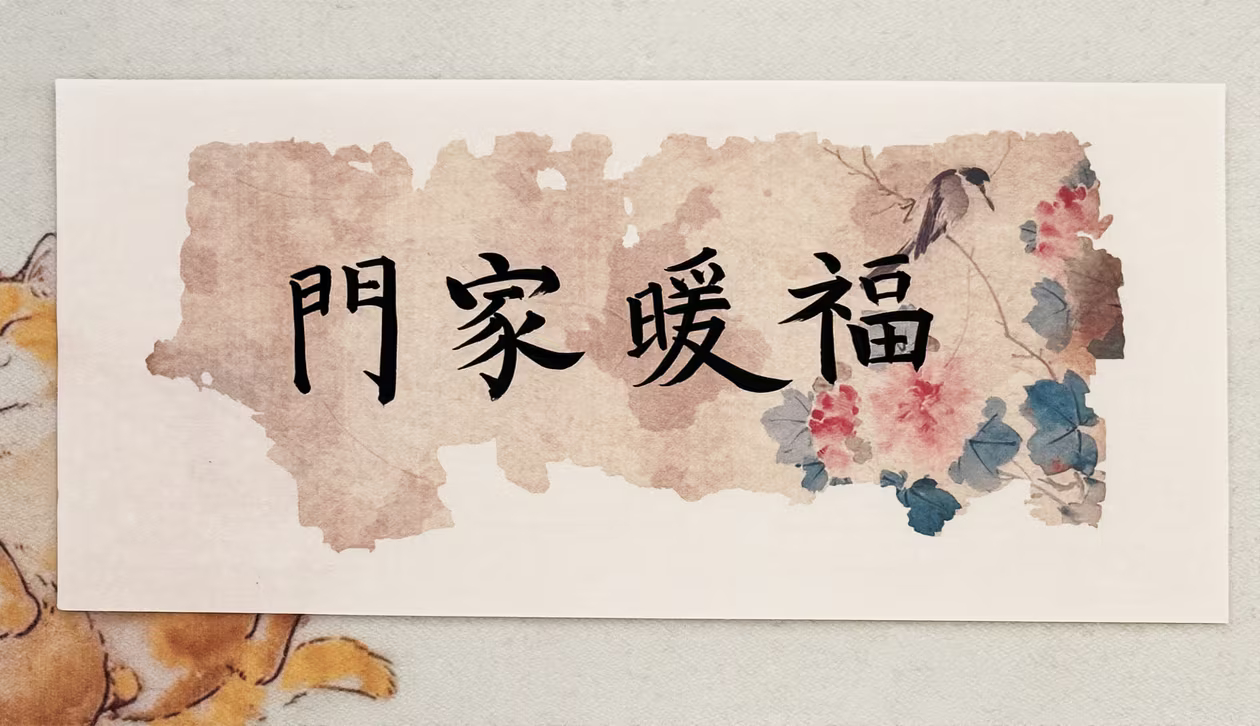 福暖家門